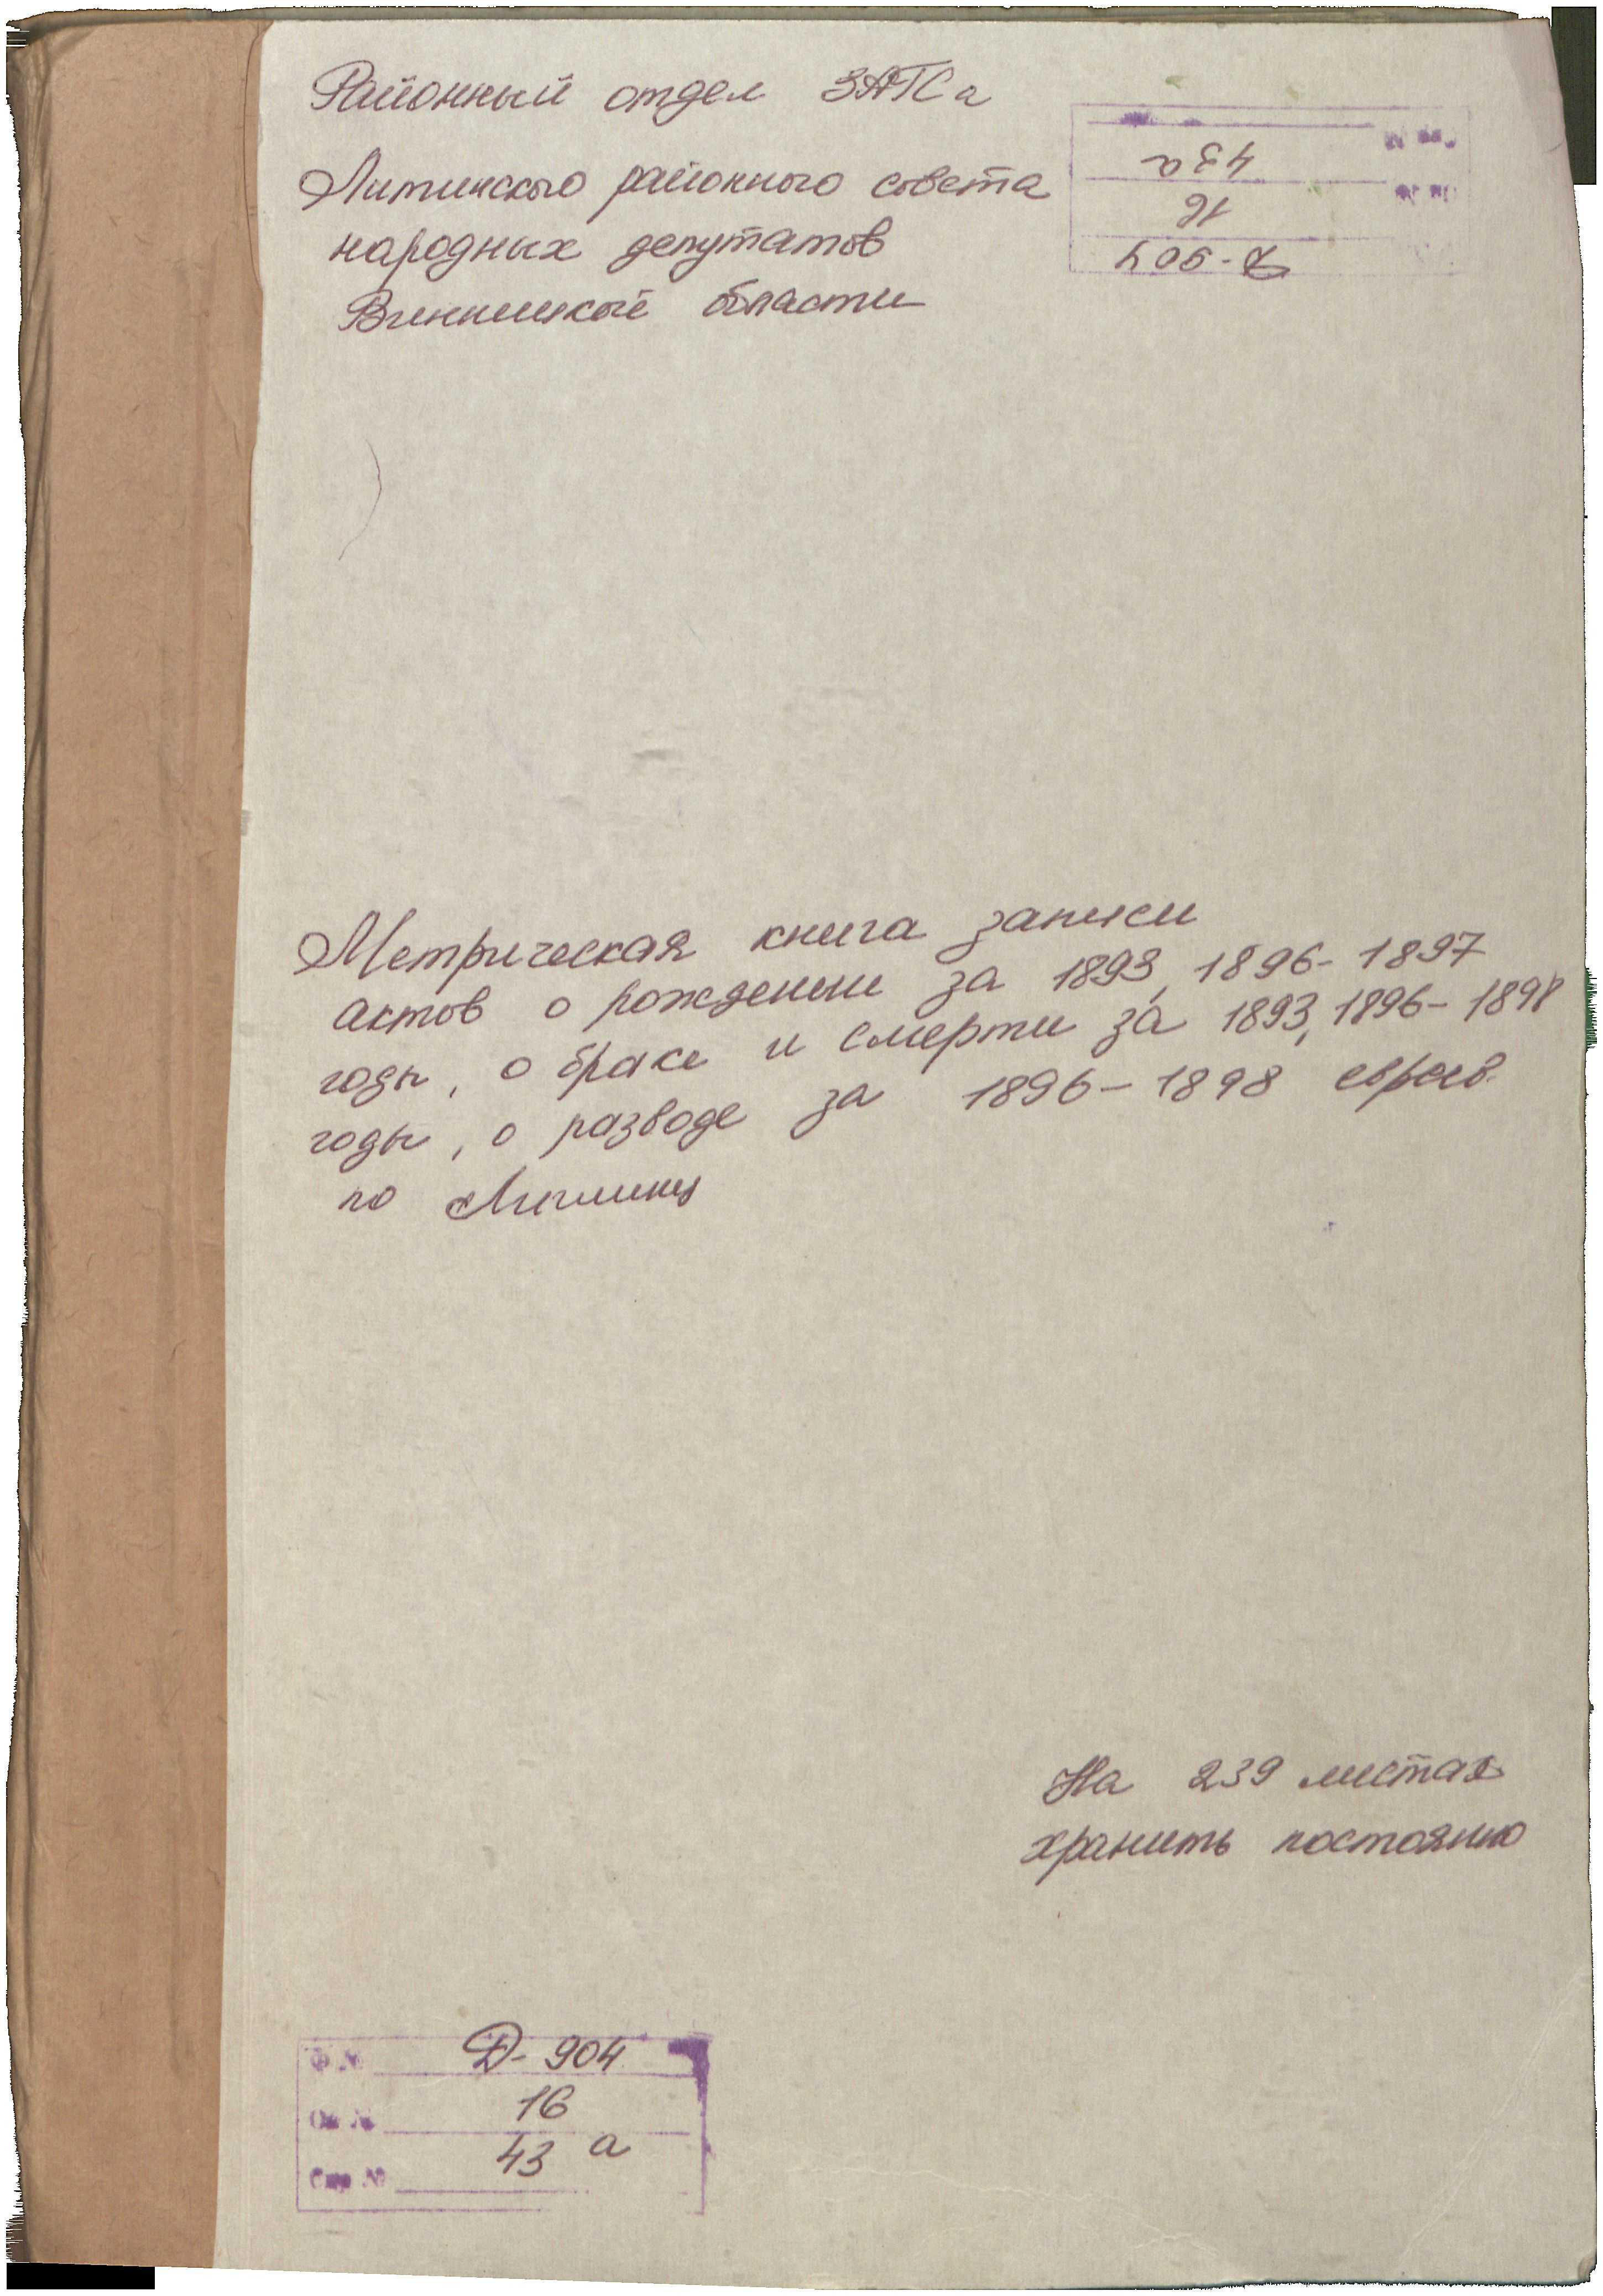 Районный отдел ЗАГСа
Литинского районного совета
народных депутатов
Винницкой области
43а
16
Д-904
Метрическая книга записи
актов о рождении за 1893, 1896-1897
годы, о браке и смерти за 1893, 1896-1898
годы, о разводе за 1896-1898 евреев
по
На 239 листах
хранить постоянно
Ф № Д-904
Оп № 16
Спр № 43 а